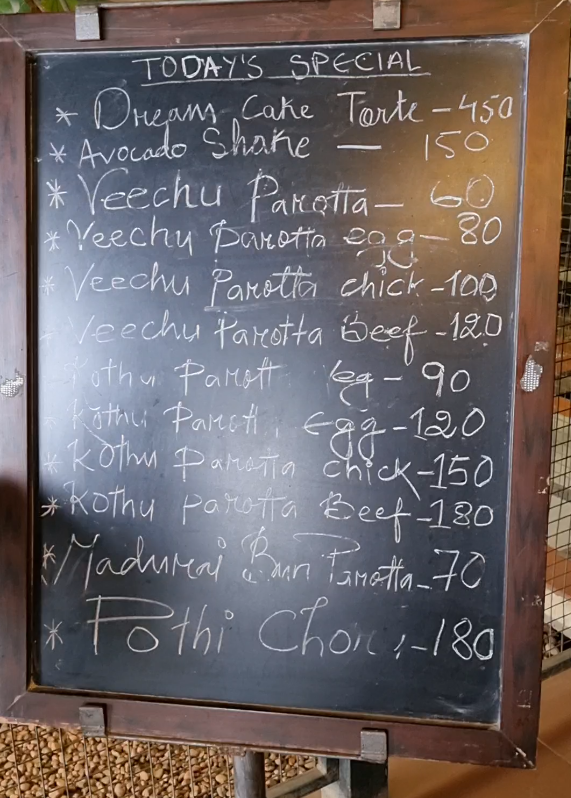 TODAY'S SPECIAL
* Dream Cake Torte - 450
* Avocado Shake — 150
* Veechu Parotta - 60
* Veechu Parotta egg - 80
* Veechu Parotta chick - 100
- Veechu Parotta Beef - 120
Kothu Parott - 90
Kothu Parott, Egg - 120
* Kothu Parotta chick - 150
* Kothu Parotta Beef - 180
* Madurai Bun Parotta - 70
* Pothi Chor, - 180